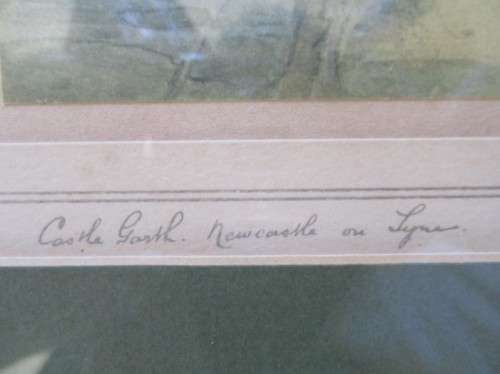 Castle Garth. Newcastle on Tyne.